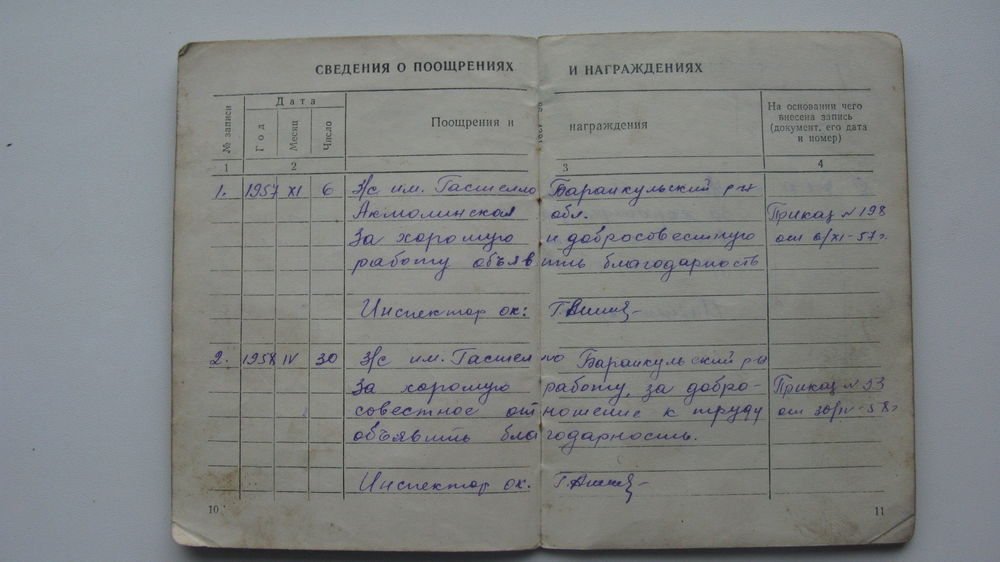 СВЕДЕНИЯ О ПООЩРЕНИЯХ И НАГРАЖДЕНИЯХ
№ записи
Дата
Год
Месяц
Число
Поощрения и награждения
На основании чего
внесена запись
(документ, его дата
и номер)
1 2 3 4
1. 1957 XI 6 З/с им. Гастелло Баранкульский р-н
Акмолинская обл. Приказ №198
За хорошую и добросовестную от 6/XI-57г.
работу объявить благодарность
Инспектор ок:
2. 1958 IV 30 З/с им. Гастелло Баранкульский р-н
За хорошую работу, за добро- Приказ №93
совестное отношение к труду от 30/IV-58г
объявить благодарность.
Инспектор ок:
10 11